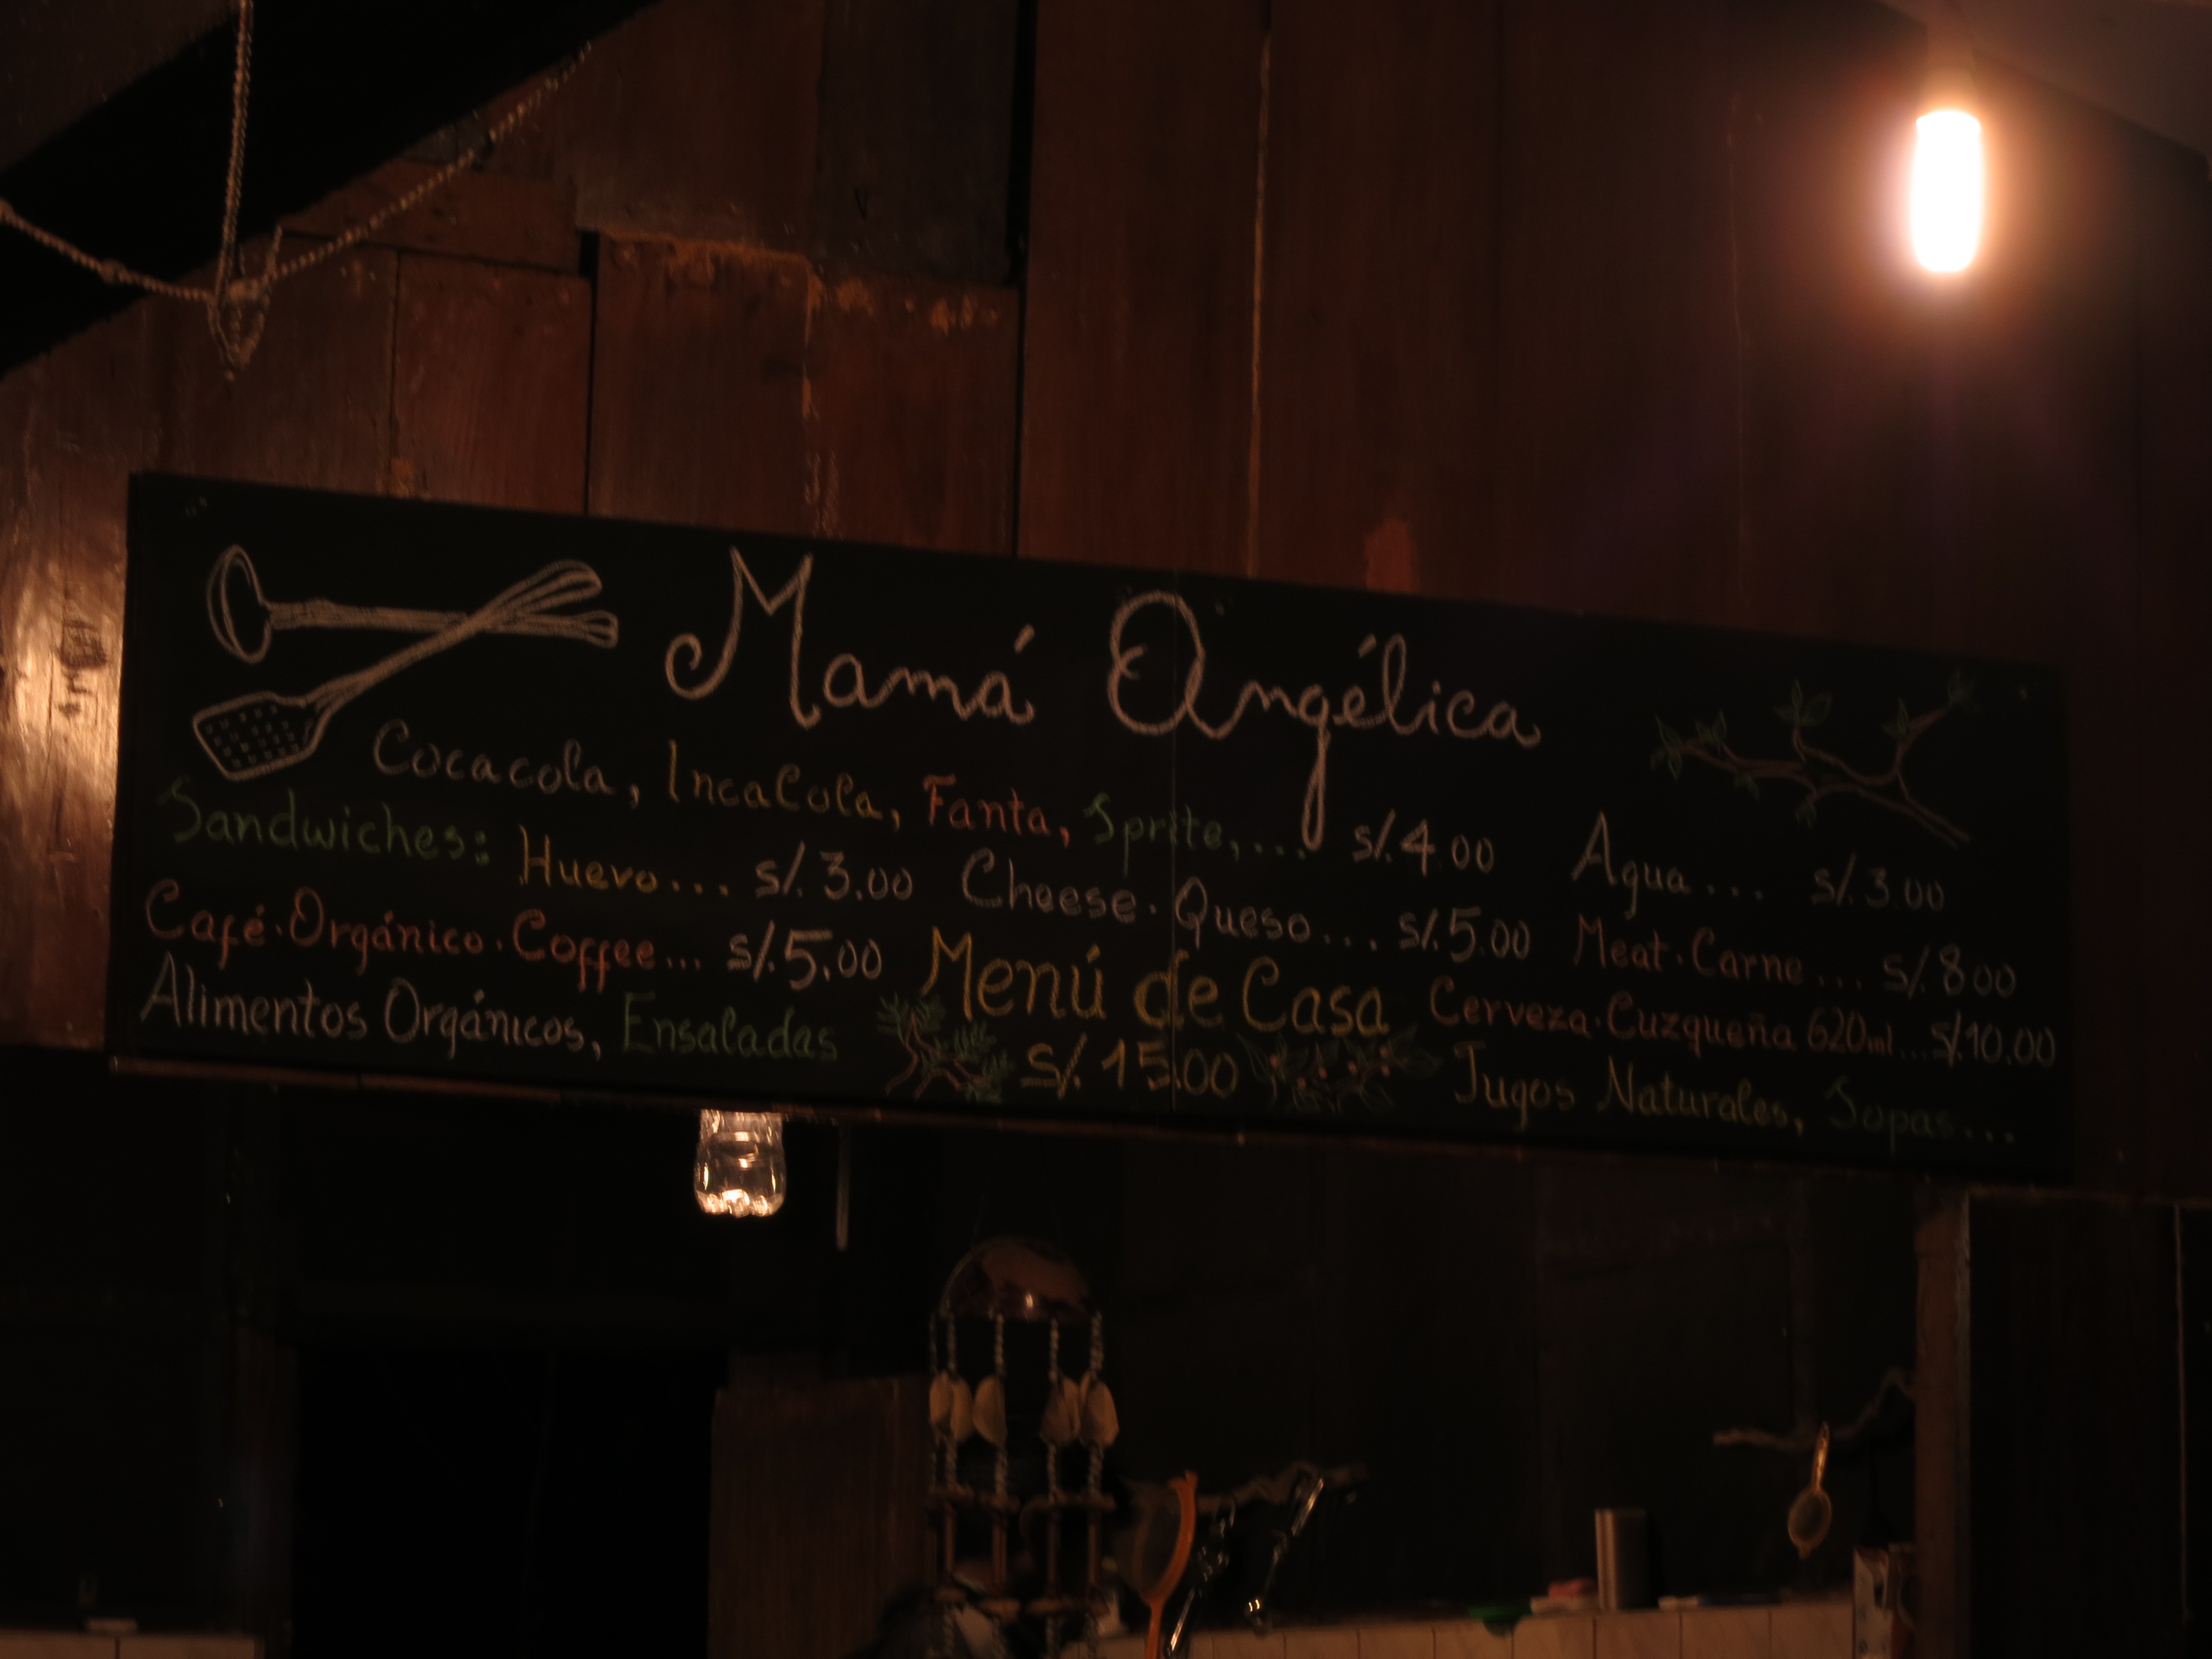 Mamá Angélica
Cocacola, IncaCola, Fanta, Sprite,... S/.4.00 Agua... S/.3.00
Sandwiches: Huevo... S/.3.00 Cheese.Queso... S/.5.00 Meat.Carne... S/.8.00
Café.Orgánico.Coffee... S/.5.00 Menú de Casa Cerveza.Cuzqueña 620ml... S/.10.00
Alimentos Orgánicos, Ensaladas S/.15.00 Jugos Naturales, Sopas...